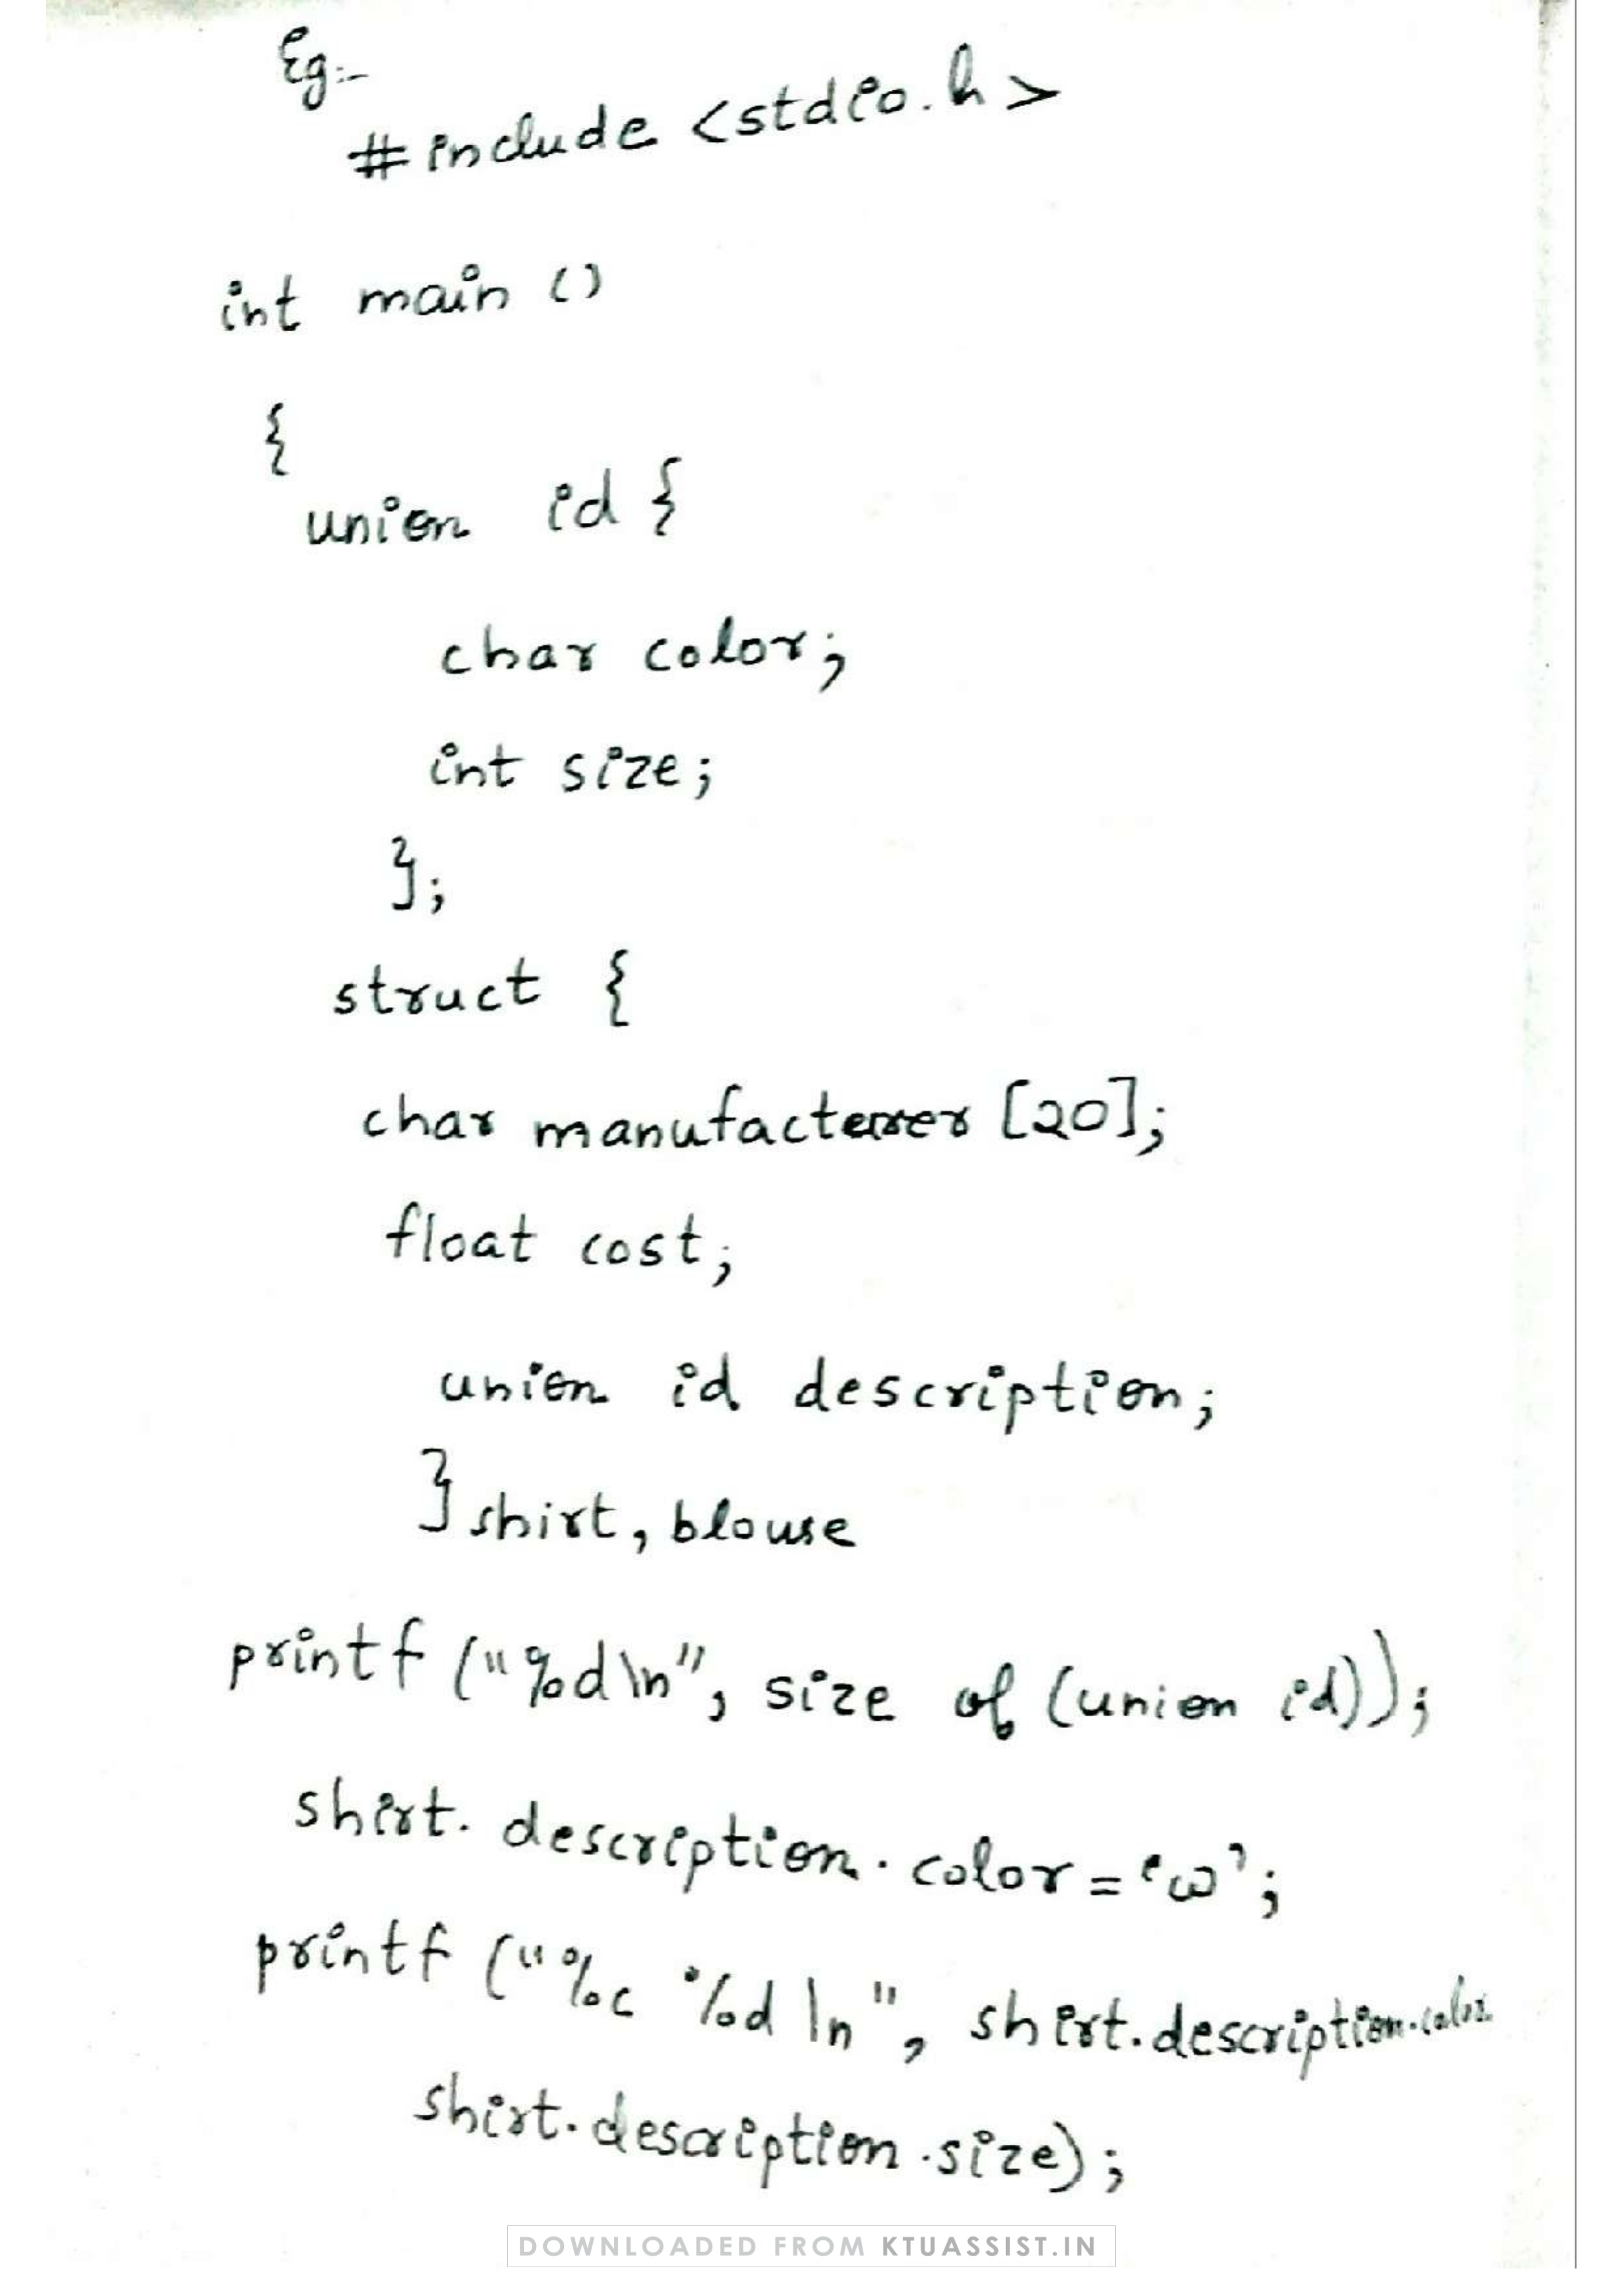 Eg:-
#include <stdio.h>
int main ()
{
union id {
char color;
int size;
};
struct {
char manufacturer [20];
float cost;
union id description;
} shirt, blouse
printf ("%d\n", size of (union id));
shirt. description. color = 'w';
printf ("%c %d \n", shirt. description.color
shirt. description .size);
DOWNLOADED FROM KTUASSIST.IN